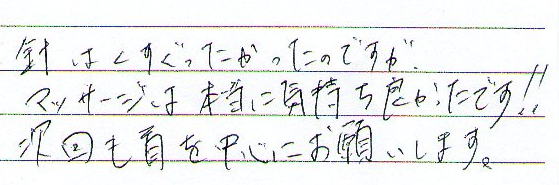 針はくすぐったかったのですが、
マッサージは本当に気持ち良かったです!!
次回も首を中心にお願いします。